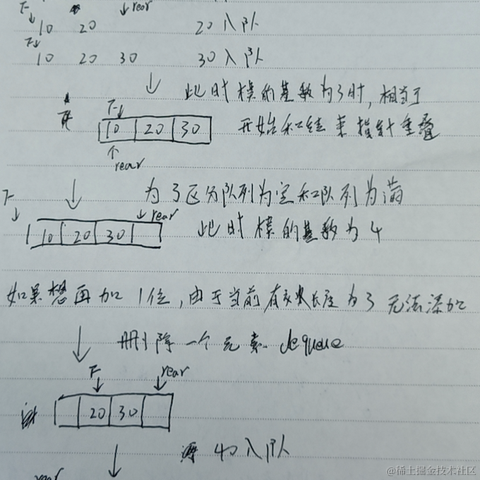 F rear
10 20 20入队
F
10 20 30 30入队
此时模的基数为3时,相当于
F
10 20 30 开始和结束指针重叠
rear
为了区分队列为空和队列为满
F rear
10 20 30 此时模的基数为4
如果想再加1位,由于当前有效长度为3 无法添加
删除一个元素 dequeue
F rear
20 30
再 40入队
rear
@稀土掘金技术社区